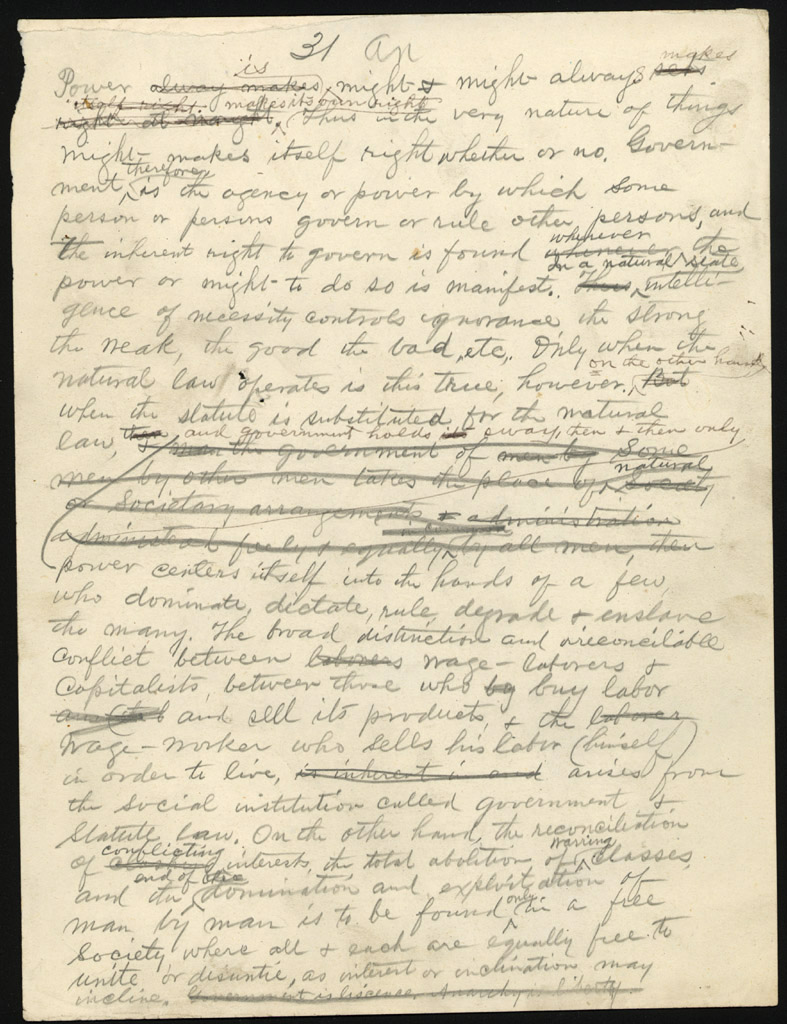 31 Ap
is makes
Power alway makes might & might always sets
itself right. makes its own right
right at naught. Thus in the very nature of things
might makes itself right, whether or no. Govern-
therefore
ment, is the agency or power by which some
person or persons govern or rule other persons, and
the inherent right to govern is found wherever the
whenever
in a natural state
power or might to do so is manifest. Thus, of intelli-
gence of necessity controls ignorance the strong
the weak, the good the bad, etc,. Only when the
on the other hand
natural law operates is this true, however. But
when the statute is substituted for the natural
and government holds its sway, then & then only
law, then the government of men by some
natural
men by other men takes the place of society
or societary arrangements & administration
in common
administered freely & equally, by all men, then
power centers itself into the hands of a few,
who dominate, dictate, rule, degrade & enslave
the many. The broad distinction and irreconcilable
conflict between laborers wage-laborers &
capitalists, between those who by buy labor
and sell its products, & the laborer
wage-worker who sells his labor (himself)
in order to live, is inherent in and arises from
the social institution called government &
statute law. On the other hand, the reconciliation
conflicting warring
of interests, the total abolition of classes,
end of the
and the domination and exploitation of
only
man by man is to be found in a free
society where all & each are equally free to
unite or disunite, as interest or inclination may
incline. Government is license, Anarchy is liberty.